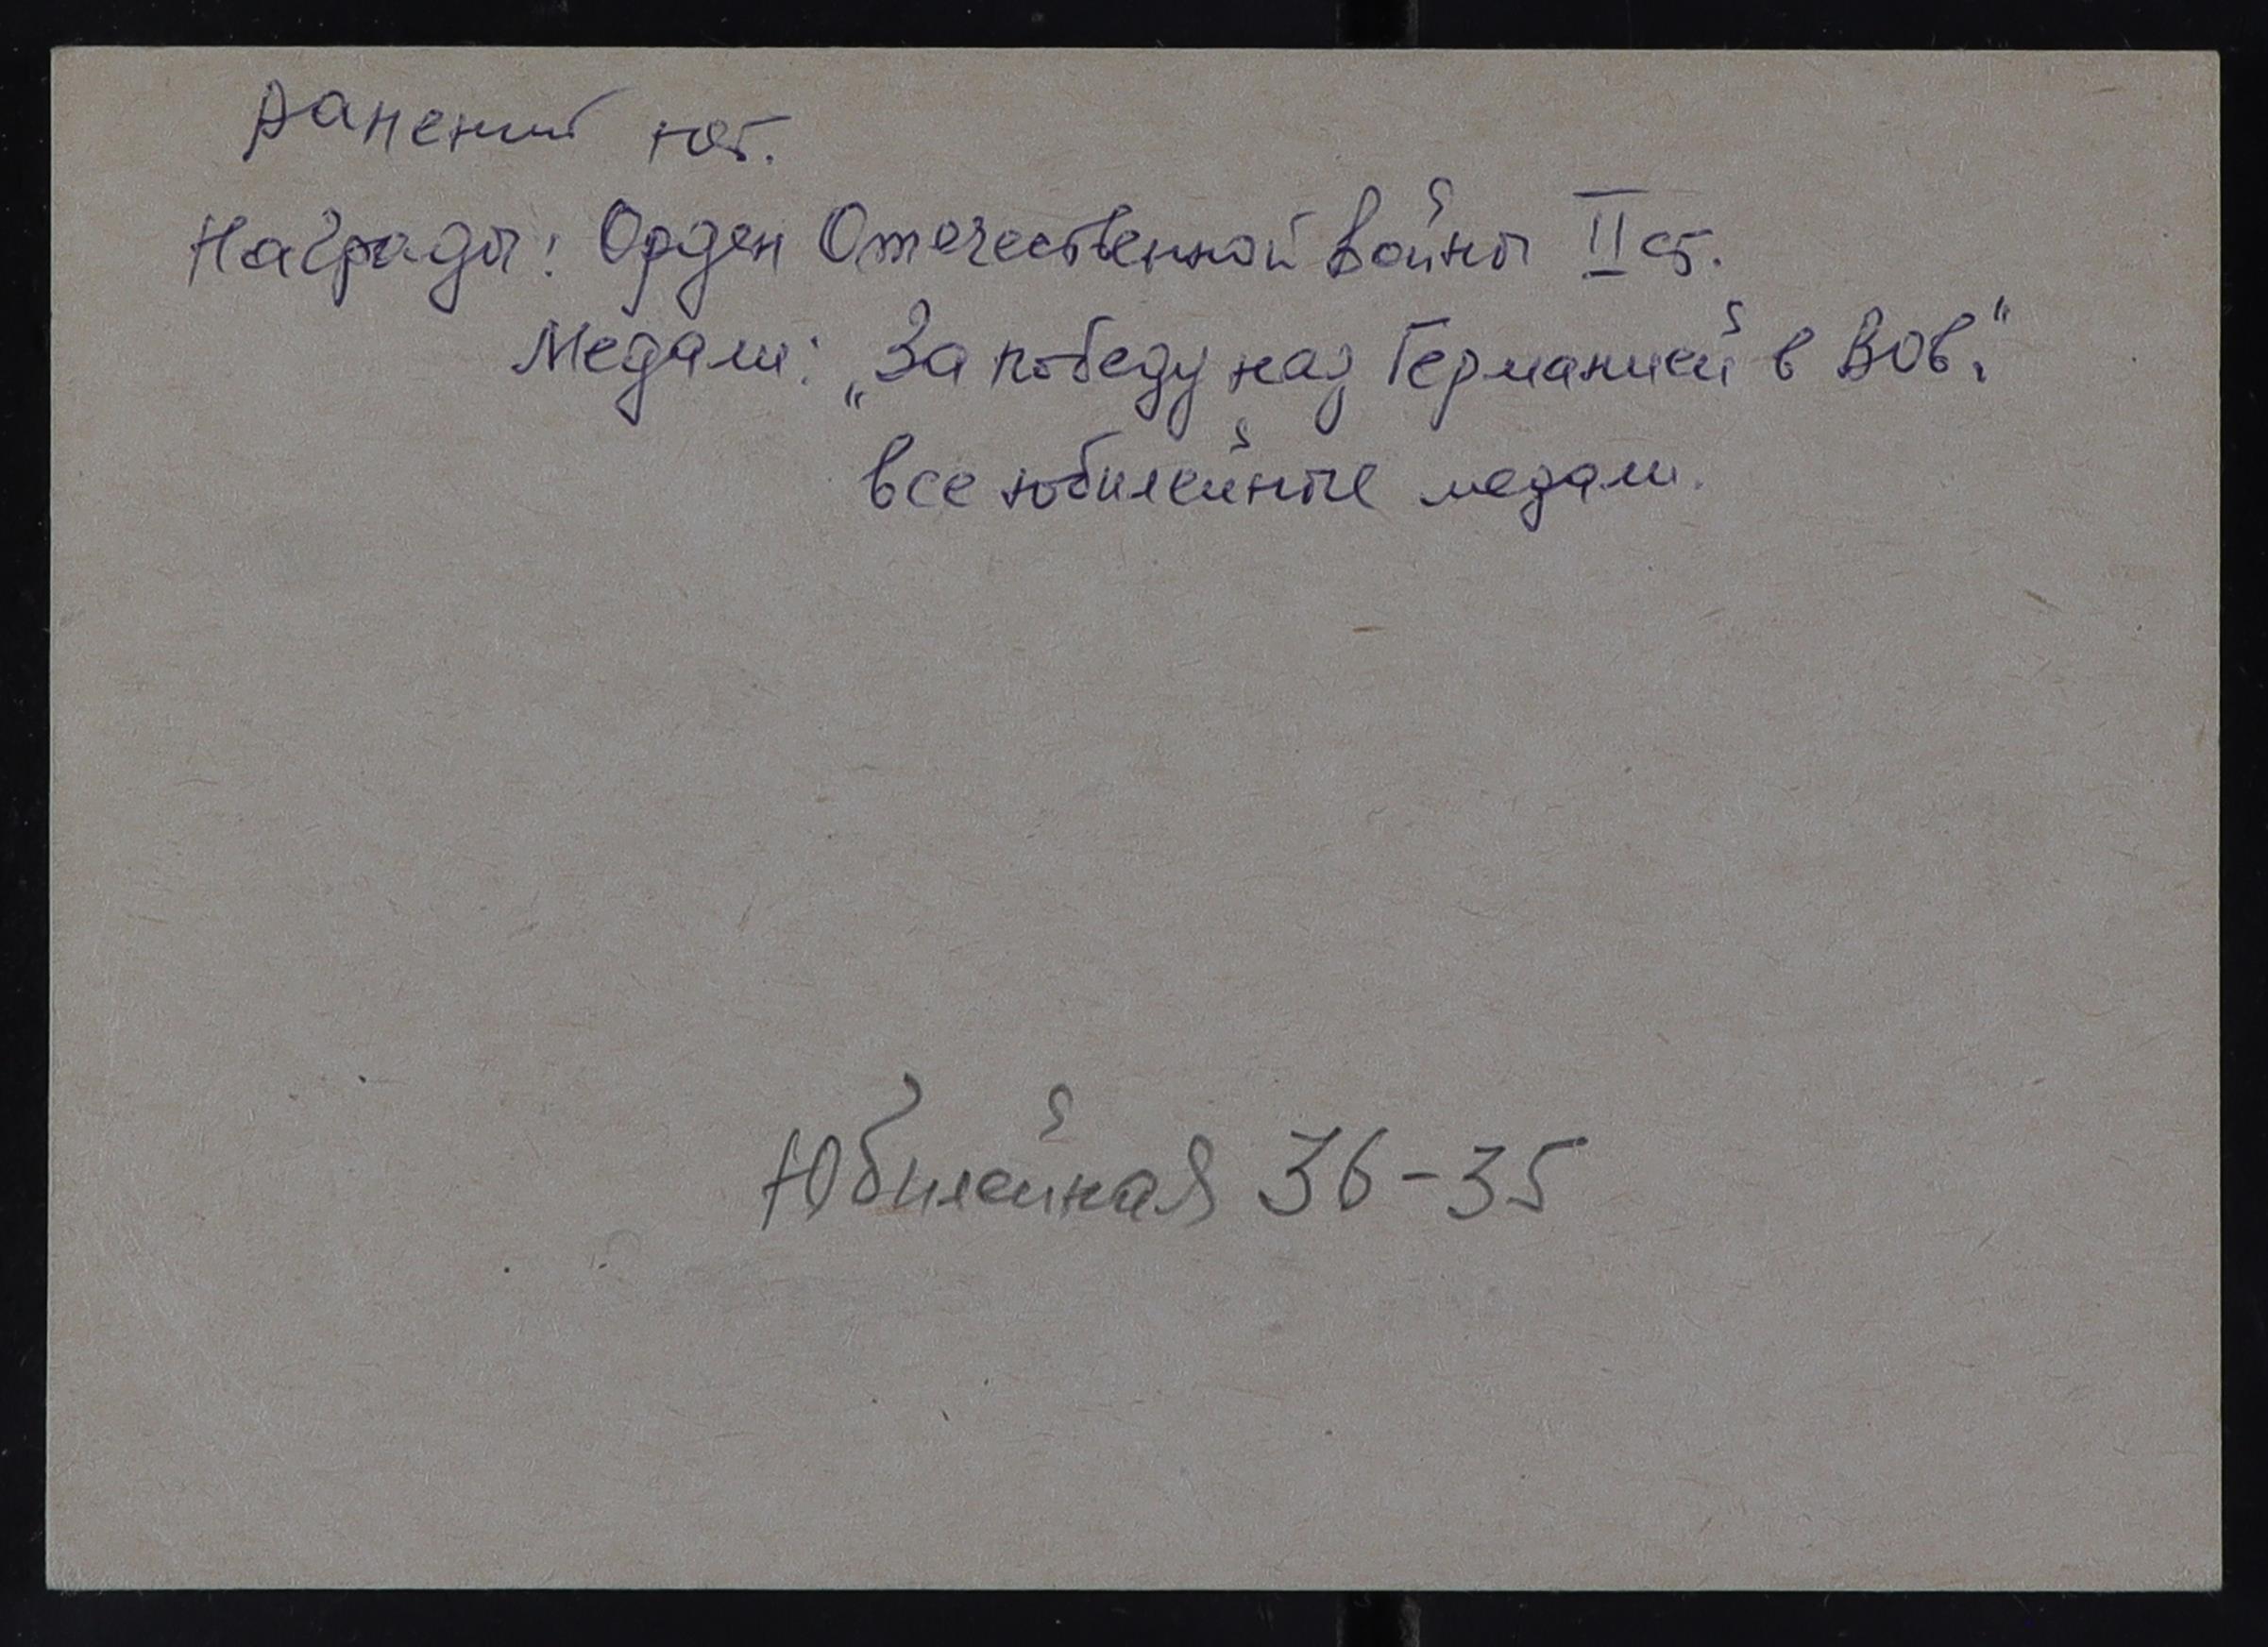 Ранений нет.
Награды: Орден Отечественной войны II ст.
Медали: „За победу над Германией в ВОв."
все юбилейные медали.
Юбилейная 36-35